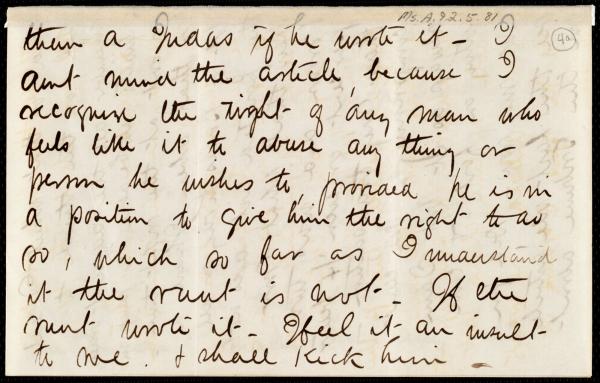 Ms. A. 9.2. 5. 81
4a
than a Judas if he wrote it - I
dont mind the article, because I
recognize the right of any man who
feels like it to abuse any thing or
person he wishes to, provided he is in
a position to give him the right to do
so, which so far as I understand
it the runt is not - If the
runt wrote it - I feel it an insult
to me. & shall Kick him -